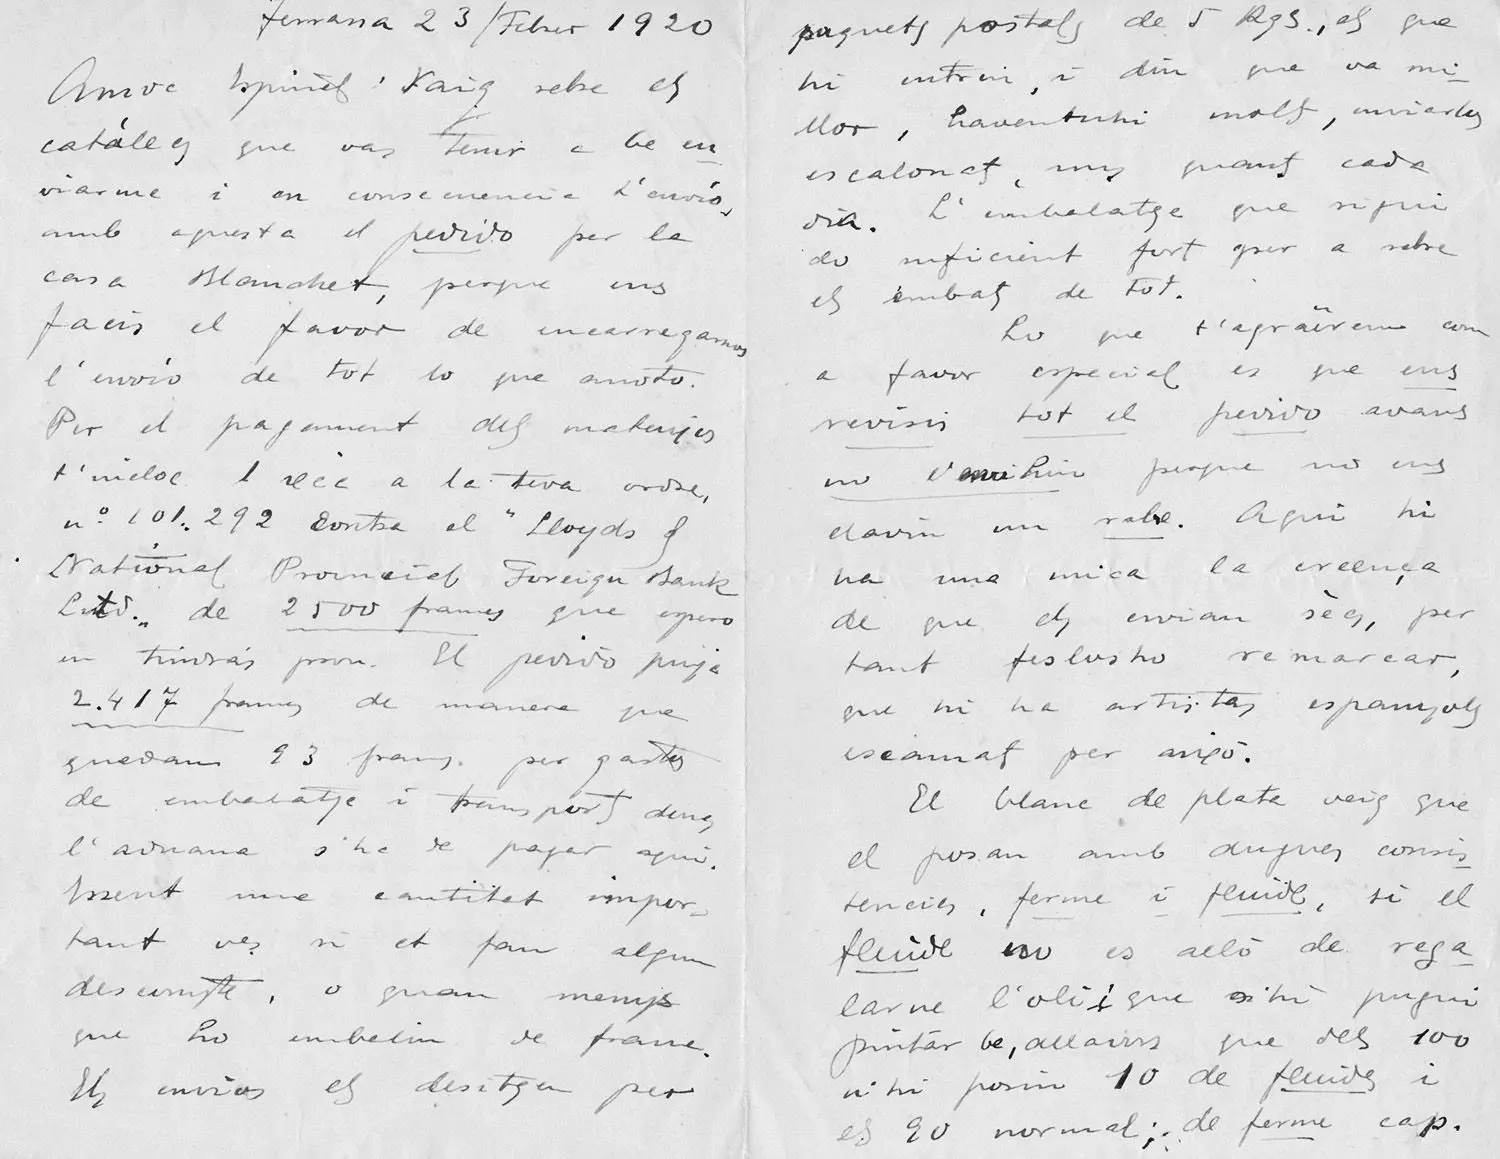 Terrassa 23/Febrer 1920
Amic Espinal: Vaig rebre els
catálegs que vas tenir a be en-
viarme i en consecuencia t'envío,
amb aquesta el pedido per la
casa Blanchet, perque ens
facis el favor de encarregarnos
l'envio de tot lo que anoto.
Per el pagament dels materials
t'incloc 1 xéc a la teva ordre,
nº 101.292 contra el "Lloyds &
National Provincial Foreign Bank
Lltd." de 2500 francs que espero
en tindrás prou. El pedido puja
2.417 francs de manera que
quedan 93 francs. per gastos
de embalatje i transports dins
l'aduana s'ha de pagar aqui.
Essent una cantitat impor-
tant ves si et fan algun
descompte, o quan menys
que ho embalin de franc.
Els envios els desitgen per
paquets postals de 5 Kgs., els que
hi entrin, i diu que va mi-
llor, haventnhi molts, enviarlos
escalonats, uns quants cada
dia. L'embalatge que sigui
do suficient fort per a rebre
els embats de tot.
Lo que t'agraïrem com
a favor especial es que ens
revisis tot el pedido avans
no l'envihin perque no ens
clavin un rabe. Aqui hi
ha una mica la creença
de que els envian sècs, per
tant feslosho remarcar,
que hi ha artistas espanyols
escamats per aixó.
El blanc de plata veig que
el posan amb dugues consis-
tencies, ferme i fluide, si el
fluide no es alló de rega-
larne l'oli i que s'hi pugui
pintár be, allavors que dels 100
n'hi posin 10 de fluide i
els 90 normal; de ferme cap.